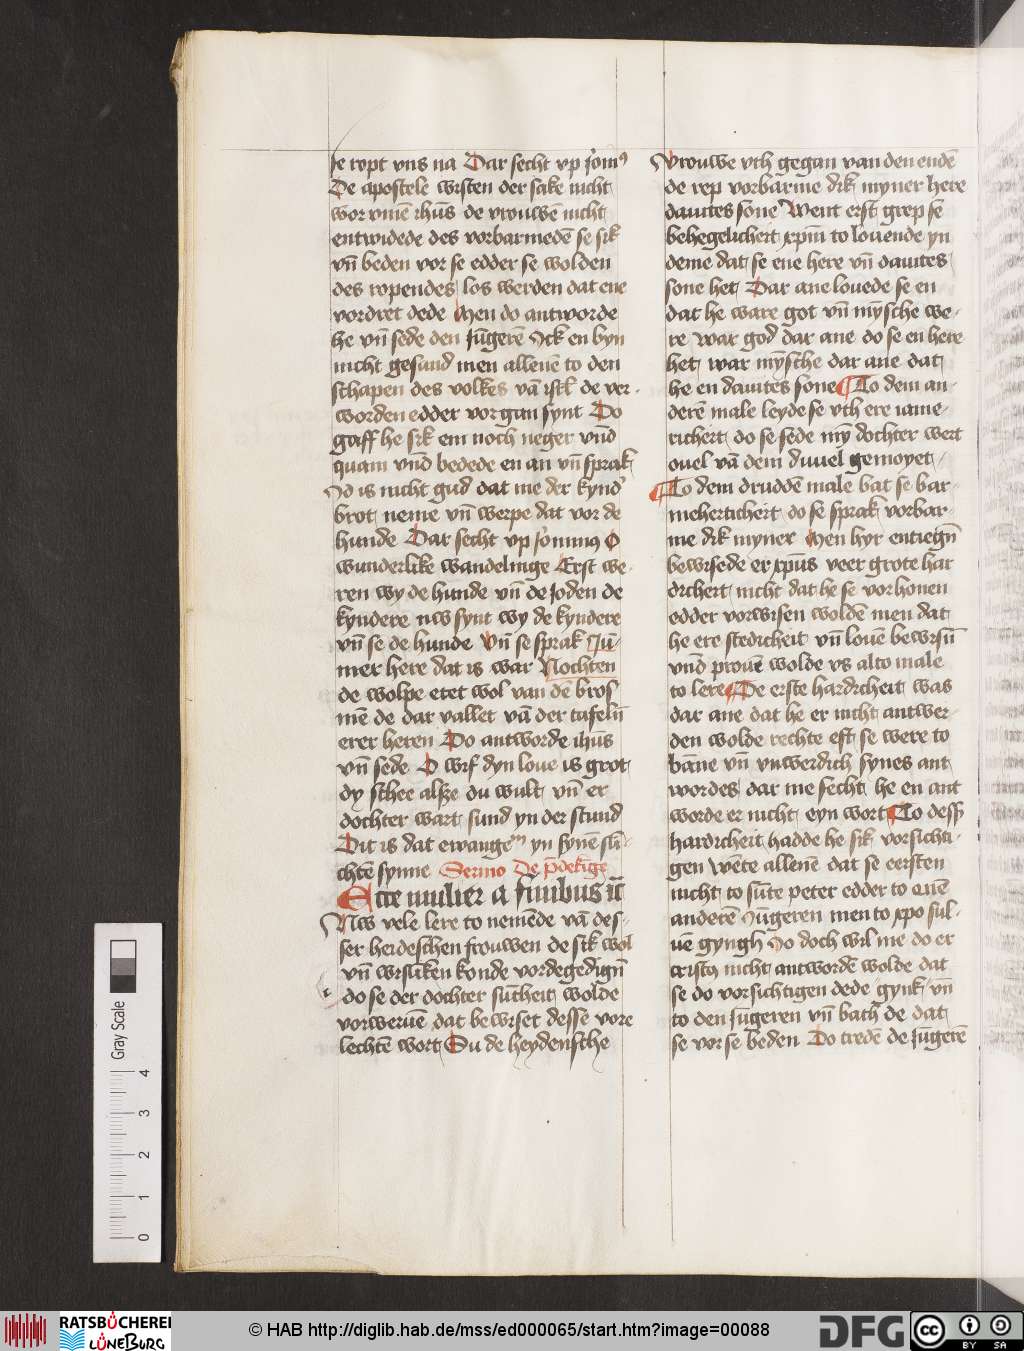 se ropt vns na Dar secht vp jom9
De apostele wisten der sake nicht
wor vmē ihūs de vrouwē nicht
entwidede des vorbarmedē se sik
vn̄ beden vor se edder se wolden
des ropendes los werden dat ene
vordret dede Men do antworde
he vn̄ sede den jūgerē Ick en byn
nicht gesund men allenē to den
schapen des volkes vā isrl̄ de ver-
worden edder vorgan synt Do
gaff he sik em noch neger vnd̄
quam vnd̄ bedede en an vn̄ sprak
Id is nicht gud dat me der kynd'
brot neme vn̄ werpe dat vor de
hunde Dar secht vp jonimus O
wunderlike wandelinge Erst we-
ren wy de hunde vn̄ de joden de
kyndere nw synt wy de kyndere
vn̄ se de hunde Vn̄ se sprak Jū-
mer here dat is war Nochten
de wolpe etet wol van dē bros
mē de dar vallet vā der tafeln̄
erer heren Do antworde ihūs
vn̄ sede O wif dyn loue is grot
dy schee alsze du wult vn̄ er
dochter wart sund yn der stund
Dit is dat ewangem yn synē sli-
chtē synne Sermo De p̄dekige
Ecce mulier a finibus ic̄
Nw vele lere to nemēde vā des-
ser heideschen frouwen de sik wol
vn̄ wisliken konde vordegedign̄
do se der dochter sūtheit wolde
vorweruē dat bewiset desse vore
lechtē wort Du de heydensche
vrouwe vth gegan van den endē
de rep vorbarme dik myner here
dauites sone Went erst grep se
behegelicheit xpm̄ to louende yn
deme dat se ene here vn̄ dauites
sone het Dar ane louede se en
dat he ware got vn̄ mȳsche we-
re war god dar ane do se en here
het war mȳsche dar ane dat
he en dauites sone To dem an-
derē male leyde se vth ere iame-
richeit do se sede mȳ dochter wert
ouel vā dem duuel gemoyet
To dem druddē male bat se bar-
meherticheit do se sprak vorbar-
me dik myner Men hyr entiegn̄
bewisede er xpūs veer grote har
dicheit nicht dat he se vorhonen
edder vorwisen woldē men dat
he ere stedicheit vn̄ louē bewisn̄
vnd̄ prouē wolde vs alto male
to lere De erste hardicheit was
dar ane dat he er nicht antwer-
den wolde rechte eft se were to
bāne vn̄ vnwerdich synes ant
wordes dar me secht he en ant
worde er nicht eyn wort To dess'
hardicheit hadde he sik vorsichti-
gen wēte allenē dat se eersten
nicht to sūte peter edder to enē
anderē jūgeren men to xpo sul-
uē gyngh So doch wil me do er
cristus nicht antwordē wolde dat
se do vorsichtigen dede gynk vn̄
to den jūgeren vn̄ bath de dat
se vor se beden Do tredē de jūgerē
Gray Scale
0 1 2 3 4
RATSBÜCHEREI LÜNEBURG
© HAB http://diglib.hab.de/mss/ed000065/start.htm?image=00088
DFG
cc BY SA